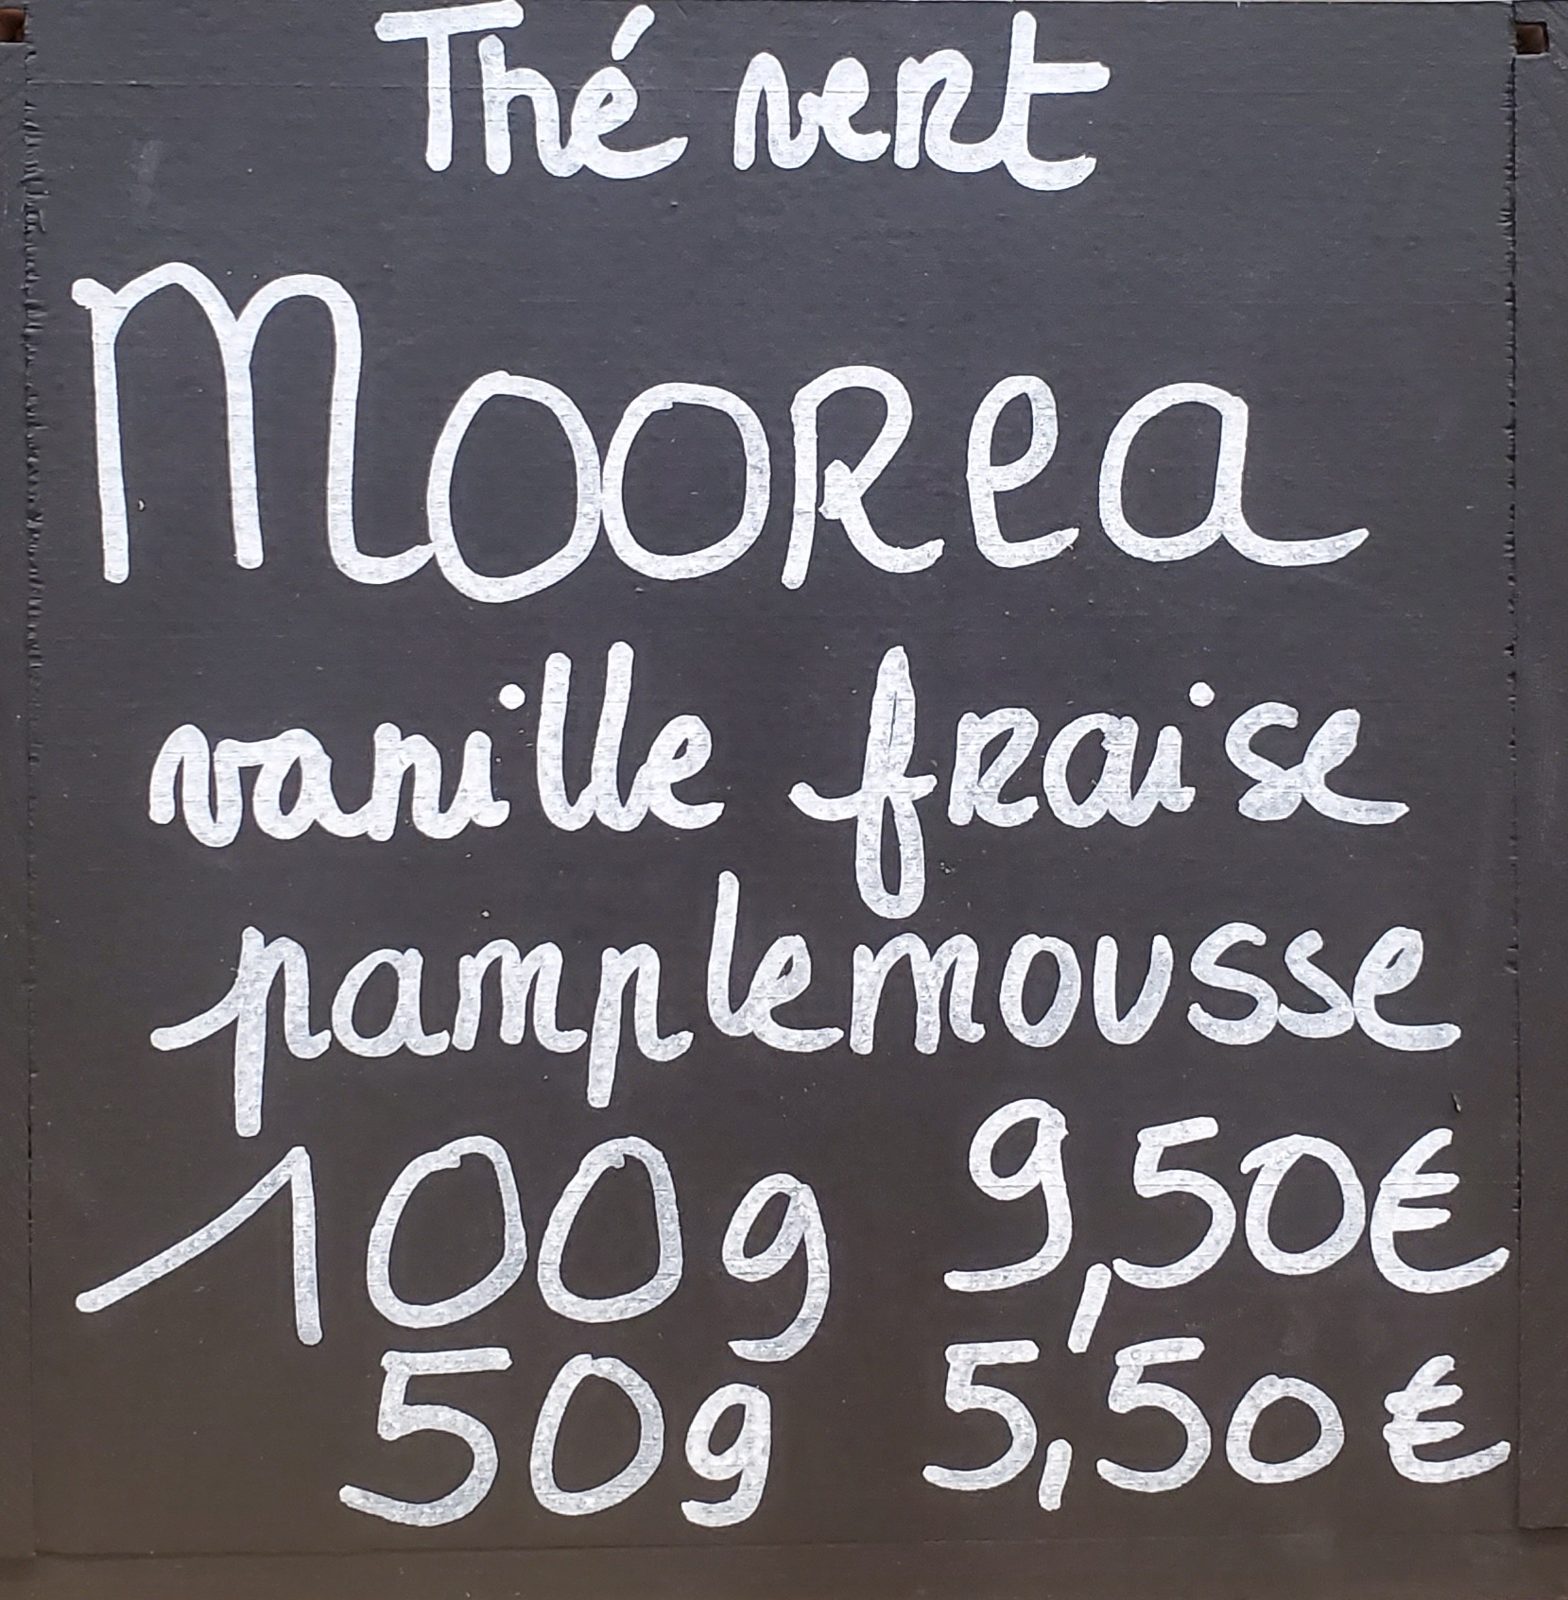 Thé vert
Moorea
vanille fraise
pamplemousse
100g 9,50€
50g 5,50€